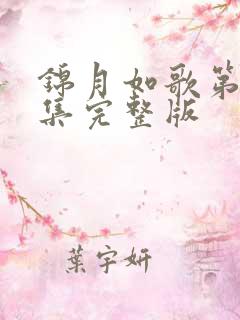 錦月如歌第
集完整版
葉宇妍